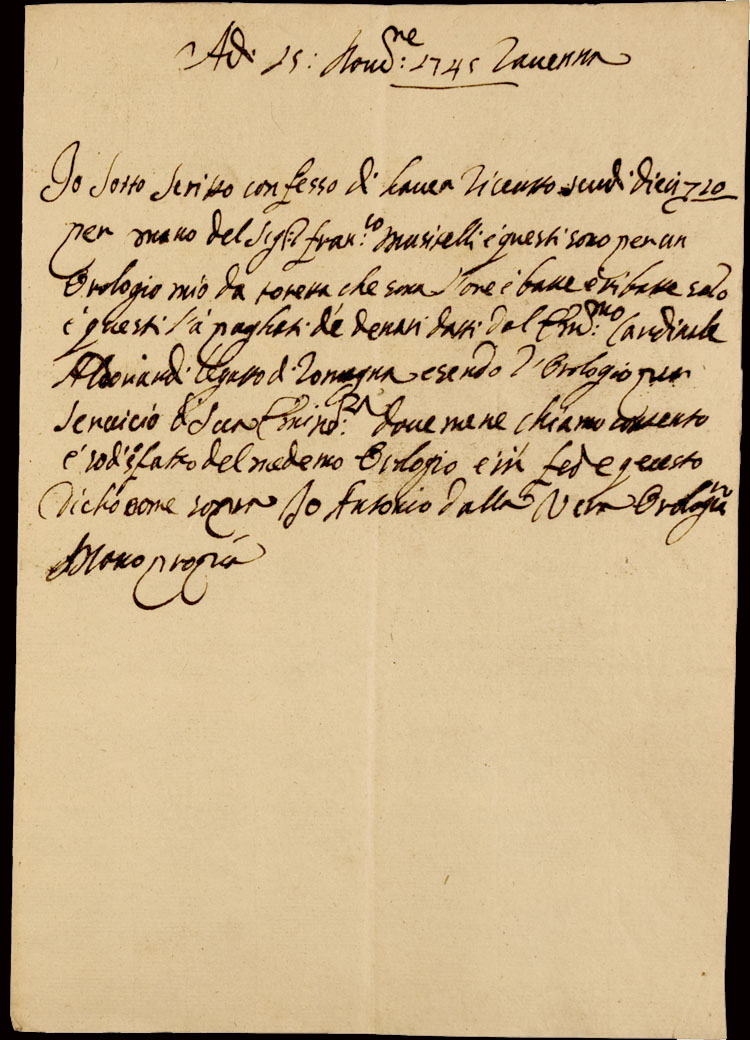 Adi 15: Novb:re 1745 Ravenna
Io sotto scritto confesso di haver ricevuto scudi dieci
per mano del Sig:r Fran:co Musitelli e questi sono per un
Orologio mio da toretta che sona l'ore e batte e ribatte solo
e questi l'à paghati de denari datti dal Emi:mo Cardinale
Aldovrandi legatto di Romagna esendo l'Orologio per
servicio di Sua Emin:za dove mene chiamo contento
e sodisfatto del medemo Orologio e in fede questo
dicho come sopra Io Antonio dalla Vera Orologia
Mano propria